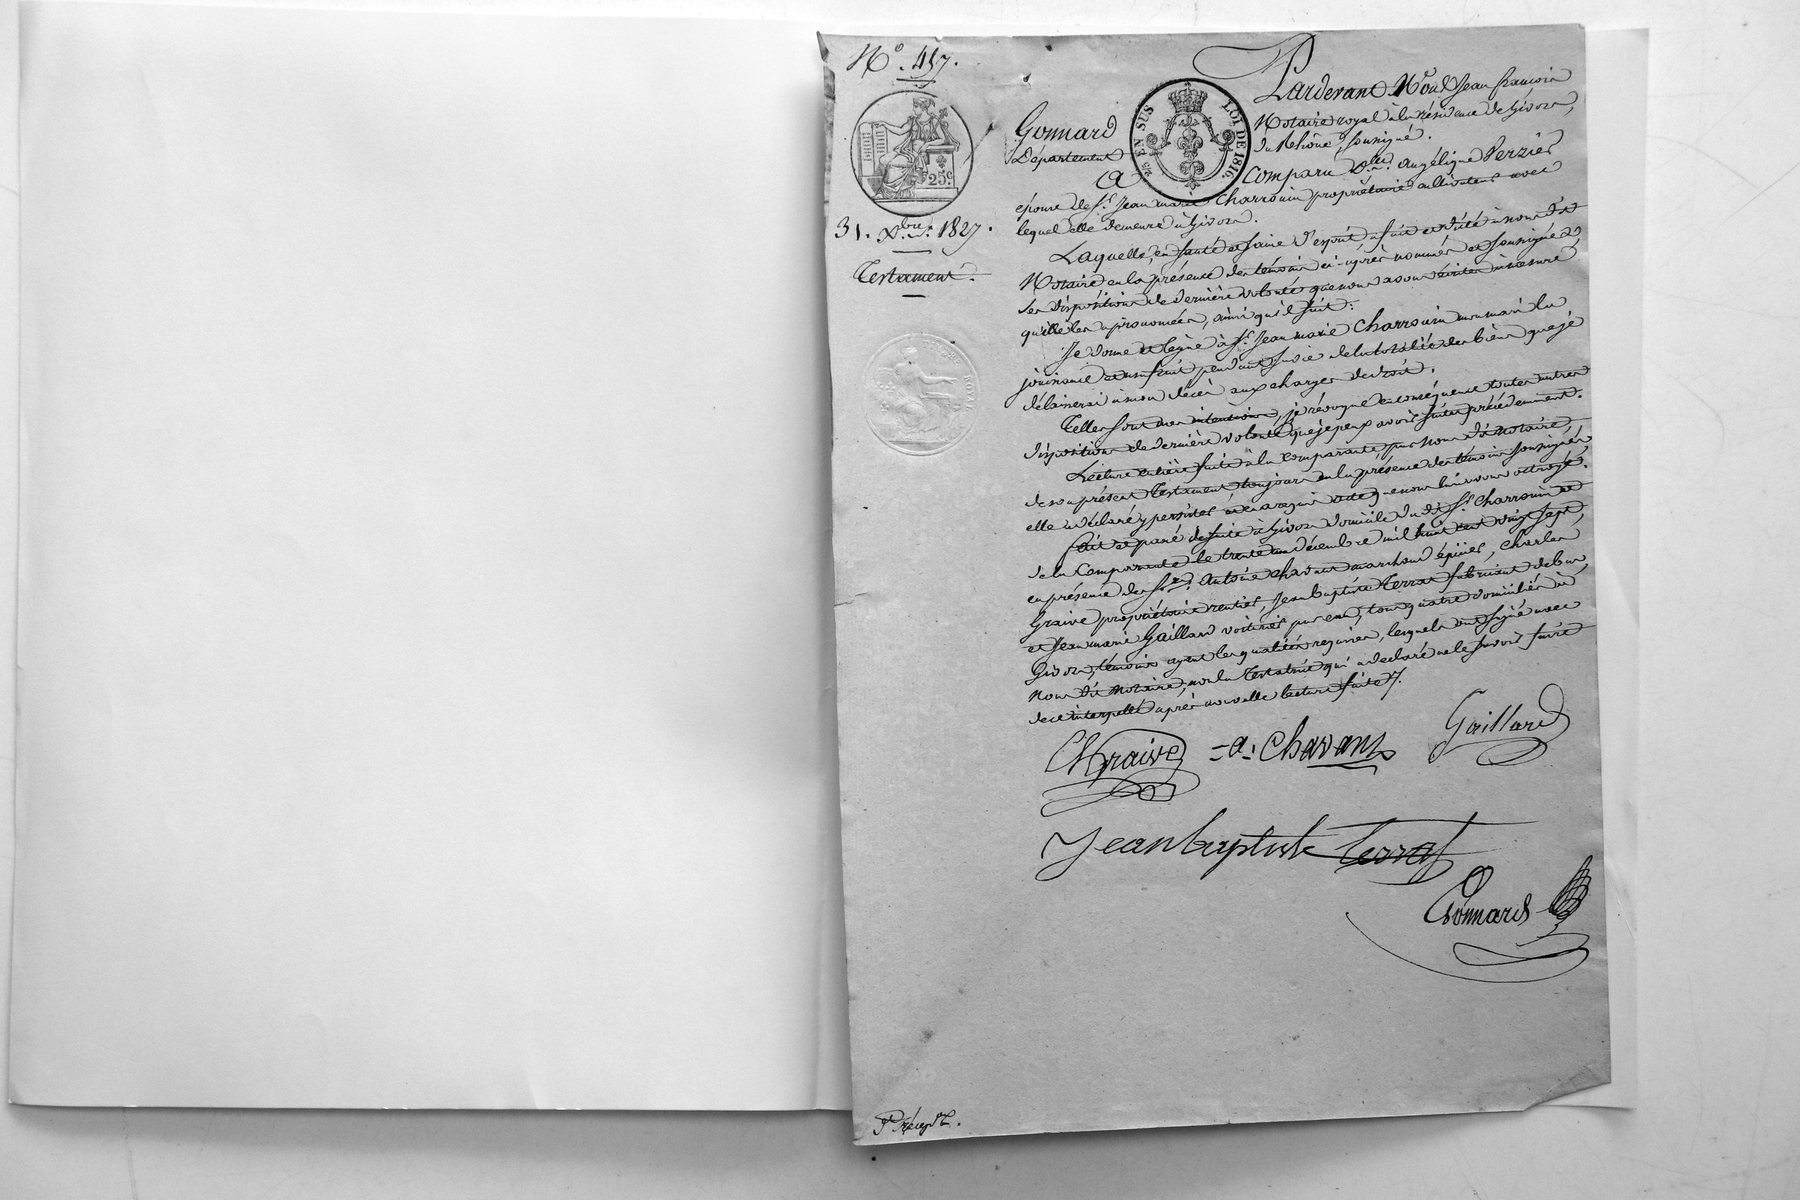 N.º 457.
25ᶜ
31. Xbre. 1827.
Testament.
25 EN SUS LOI DE 1816.
Pardevant Me Jean francois
Gonnard Notaire royal à la résidence de Givors,
Département du Rhône, soussigné.
A Comparu angélique Perzier
épouse de Sr. Jean marie Charrouin propriétaire cultivateur avec
lequel elle demeure à Givors.
Laquelle, en santé et saine d'esprit, a fait et dicté à nous dit
Notaire en la présence des témoins ci-après nommés et soussignés
ses dispositions de dernière volonté que nous avons écrites à mesure
qu'elle les a prononcées, ainsi qu'il suit:
Je donne et lègue à Sr. Jean marie Charrouin mon mari la
jouissance et usufruit pendant sa vie de la totalité des biens que je
délaisserai à mon décès aux charges de droit.
Telles sont mes intentions, je révoque en conséquence toutes autres
dispositions de dernière volonté que je peux avoir faites précédemment.
Lecture entière faite à la comparante par nous dit notaire,
de son présent Testament toujours en la présence des témoins soussignés
elle a déclaré y persister et en a requis acte que nous lui avons octroyé.
fait et passé de suite à Givors domicile du dit Sr. Charrouin et
de la Comparante le trente un décembre mil huit cent vingt sept,
en présence de Srs. Antoine Chavant marchand épicier, Charles
Graive propriétaire rentier, Jean baptiste Terrat fabricant de bas,
et Jean marie Gaillard voiturier par eau, tous quatre domiciliés à
Givors, témoins ayant les qualités requises, lesquels ont signé avec
nous dit notaire, non la Testatrice qui a declaré ne le savoir faire
de ce interpellé après nouvelle lecture faite.
Ch Graive - a. Chavant Gaillard
Jean baptiste Terrat
Gonnard